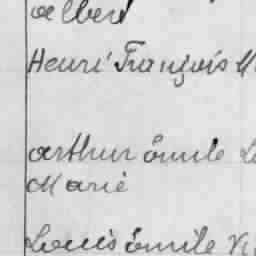 Albert
Henri François M
Arthur Émile Lo
Marie
Louis Émile Vi